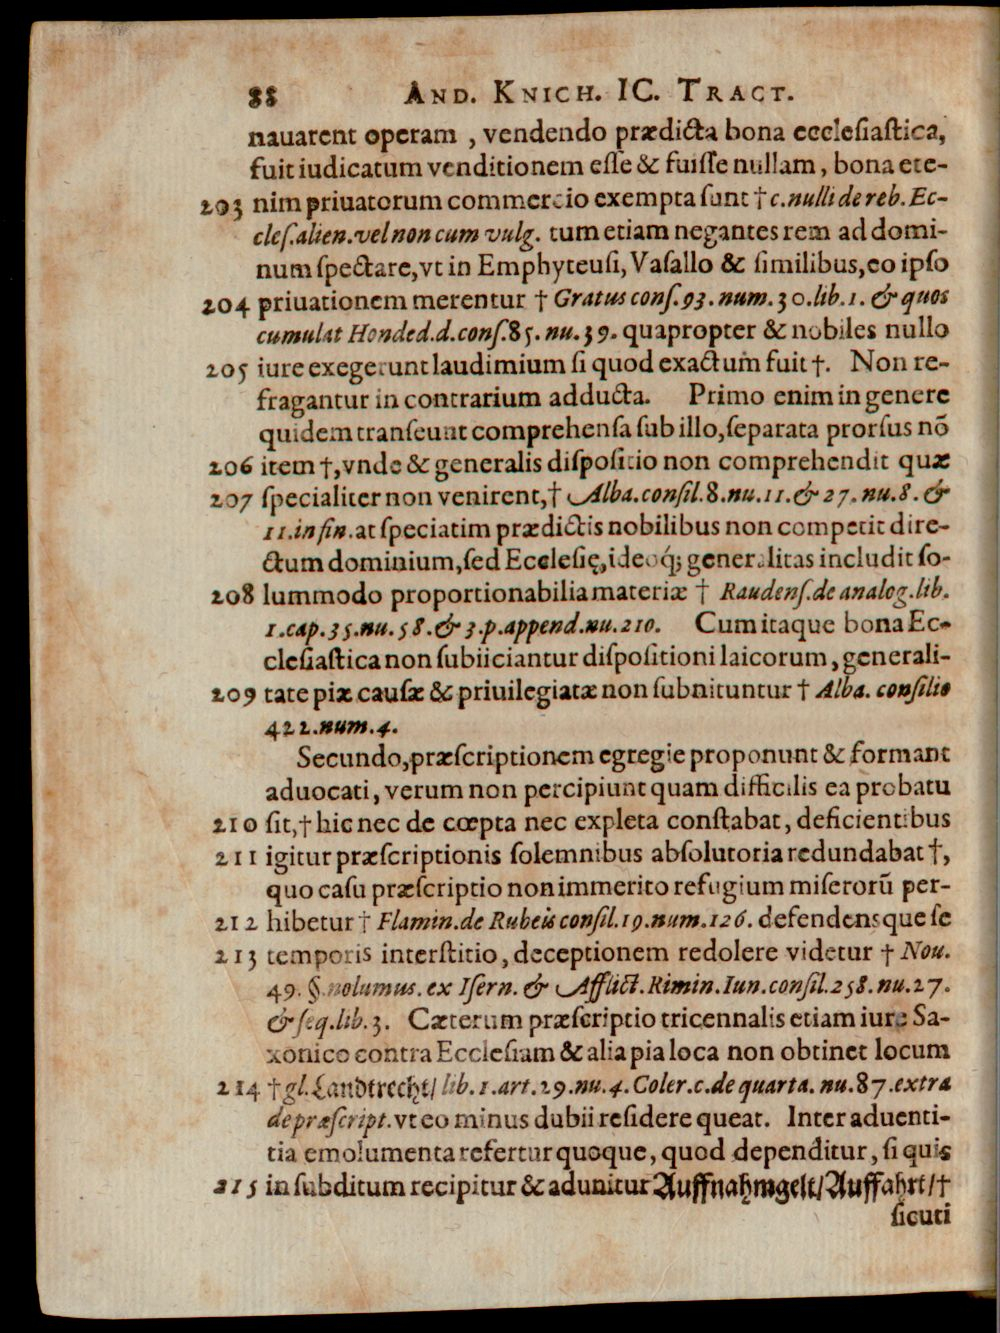 88 AND. KNICH. IC. TRACT.
nauarent operam , vendendo prædicta bona ecclesiastica,
fuit iudicatum venditionem esse & fuisse nullam, bona ete-
203 nim priuatorum commercio exempta sunt † c. nulli de reb. Ec-
cles. alien. vel non cum vulg. tum etiam negantes rem ad domi-
num spectare, vt in Emphyteusi, Vasallo & similibus, eo ipso
204 priuationem merentur † Gratus cons. 93. num. 30. lib. 1. & quos
cumulat Honded. d. cons. 85. nu. 39. quapropter & nobiles nullo
205 iure exegerunt laudimium si quod exactum fuit †. Non re-
fragantur in contrarium adducta. Primo enim in genere
quidem transeunt comprehensa sub illo, separata prorsus nō
206 item †, vnde & generalis dispositio non comprehendit quæ
207 specialiter non venirent, † Alba. consil. 8. nu. 11. & 27. nu. 8. &
11. in fin. at speciatim prædictis nobilibus non competit dire-
ctum dominium, sed Ecclesię, ideoq́; generalitas includit so-
208 lummodo proportionabilia materiæ † Raudens. de analog. lib.
1. cap. 35. nu. 58. & 3. p. append. nu. 210. Cum itaque bona Ec-
clesiastica non subiiciantur dispositioni laicorum, generali-
209 tate piæ causæ & priuilegiatæ non subnituntur † Alba. consilio
422. num. 4.
Secundo, præscriptionem egregie proponunt & formant
aduocati, verum non percipiunt quam difficilis ea probatu
210 sit, † hic nec de cœpta nec expleta constabat, deficientibus
211 igitur præscriptionis solemnibus absolutoria redundabat †,
quo casu præscriptio non immerito refugium miserorũ per-
212 hibetur † Flamin. de Rubeis consil. 19. num. 126. defendensque se
213 temporis interstitio, deceptionem redolere videtur † Nou.
49. §. nolumus. ex Isern. & Afflict. Rimin. Iun. consil. 258. nu. 27.
& seq. lib. 3. Cæterum præscriptio tricennalis etiam iure Sa-
xonico contra Ecclesiam & alia pia loca non obtinet locum
214 † gl. Landtrecht/ lib. 1. art. 29. nu. 4. Coler. c. de quarta. nu. 87. extra
de præscript. vt eo minus dubii residere queat. Inter aduenti-
tia emolumenta refertur quoque, quod dependitur, si quis
215 in subditum recipitur & adunitur Auffnahmgelt/ Auffahrt/ †
sicuti